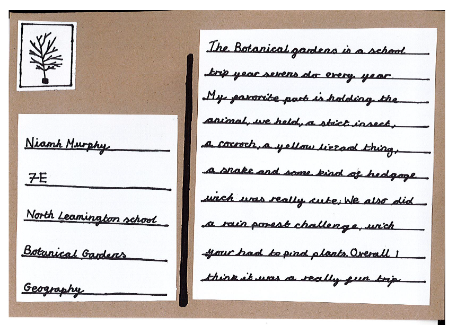 Niamh Murphy
7E
North Leamington school
Botanical Gardens
Geography
The Botanical gardens is a school
trip year sevens do every year
My favorite part is holding the
animal, we held, a stict insect,
a cocroch, a yellow lizard thing,
a snake and some kind of hedgoge
wich was really cute, We also did
a rain forest challenge, wich
your had to find plants. Overall I
think it was a really fun trip